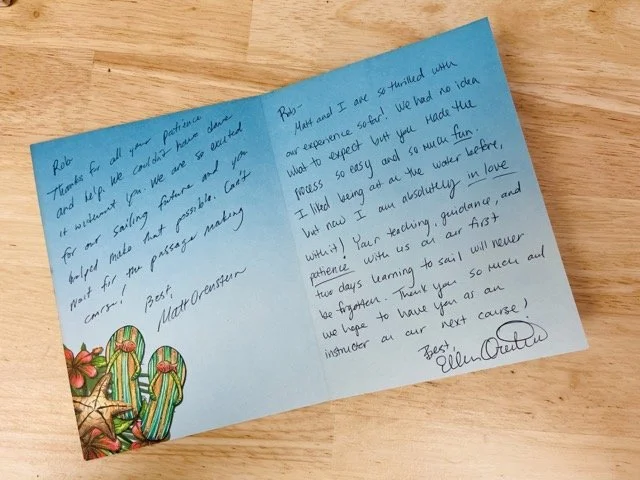 Rob-
Thanks for all your patience
and help. We couldn't have done
it without you. We are so excited
for our sailing future and you
helped make that possible. Can't
wait for the passage making
course!
Best,
Matt Orenstein
Rob-
Matt and I are so thrilled with
our experience so far! We had no idea
what to expect but you made the
process so easy and so much fun.
I liked being out on the water before,
but now I am absolutely in love
with it! Your teaching, guidance, and
patience with us on our first
two days learning to sail will never
be forgotten. Thank you so much and
we hope to have you as an
instructor on our next course!
Best,
Ellen